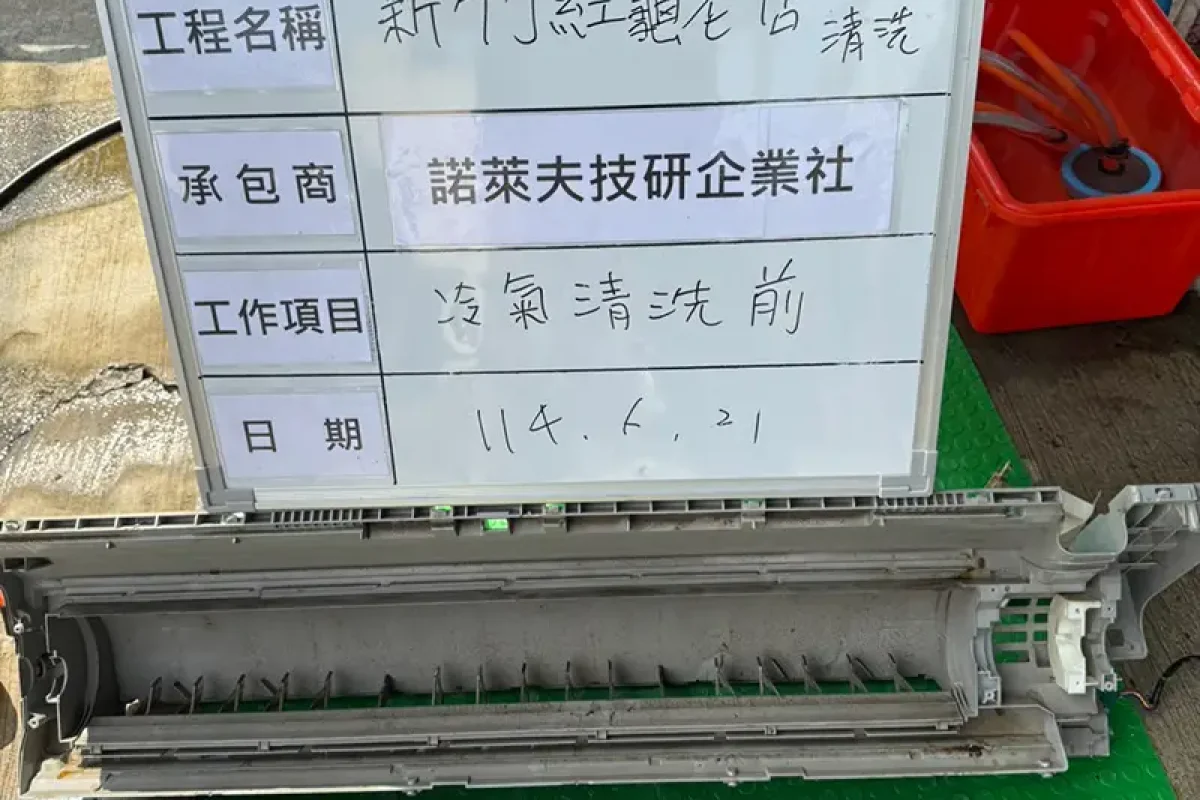 工程名稱 新竹紅龜老店 清洗
承包商 諾萊夫技研企業社
工作項目 冷氣清洗前
日 期 114.6.21